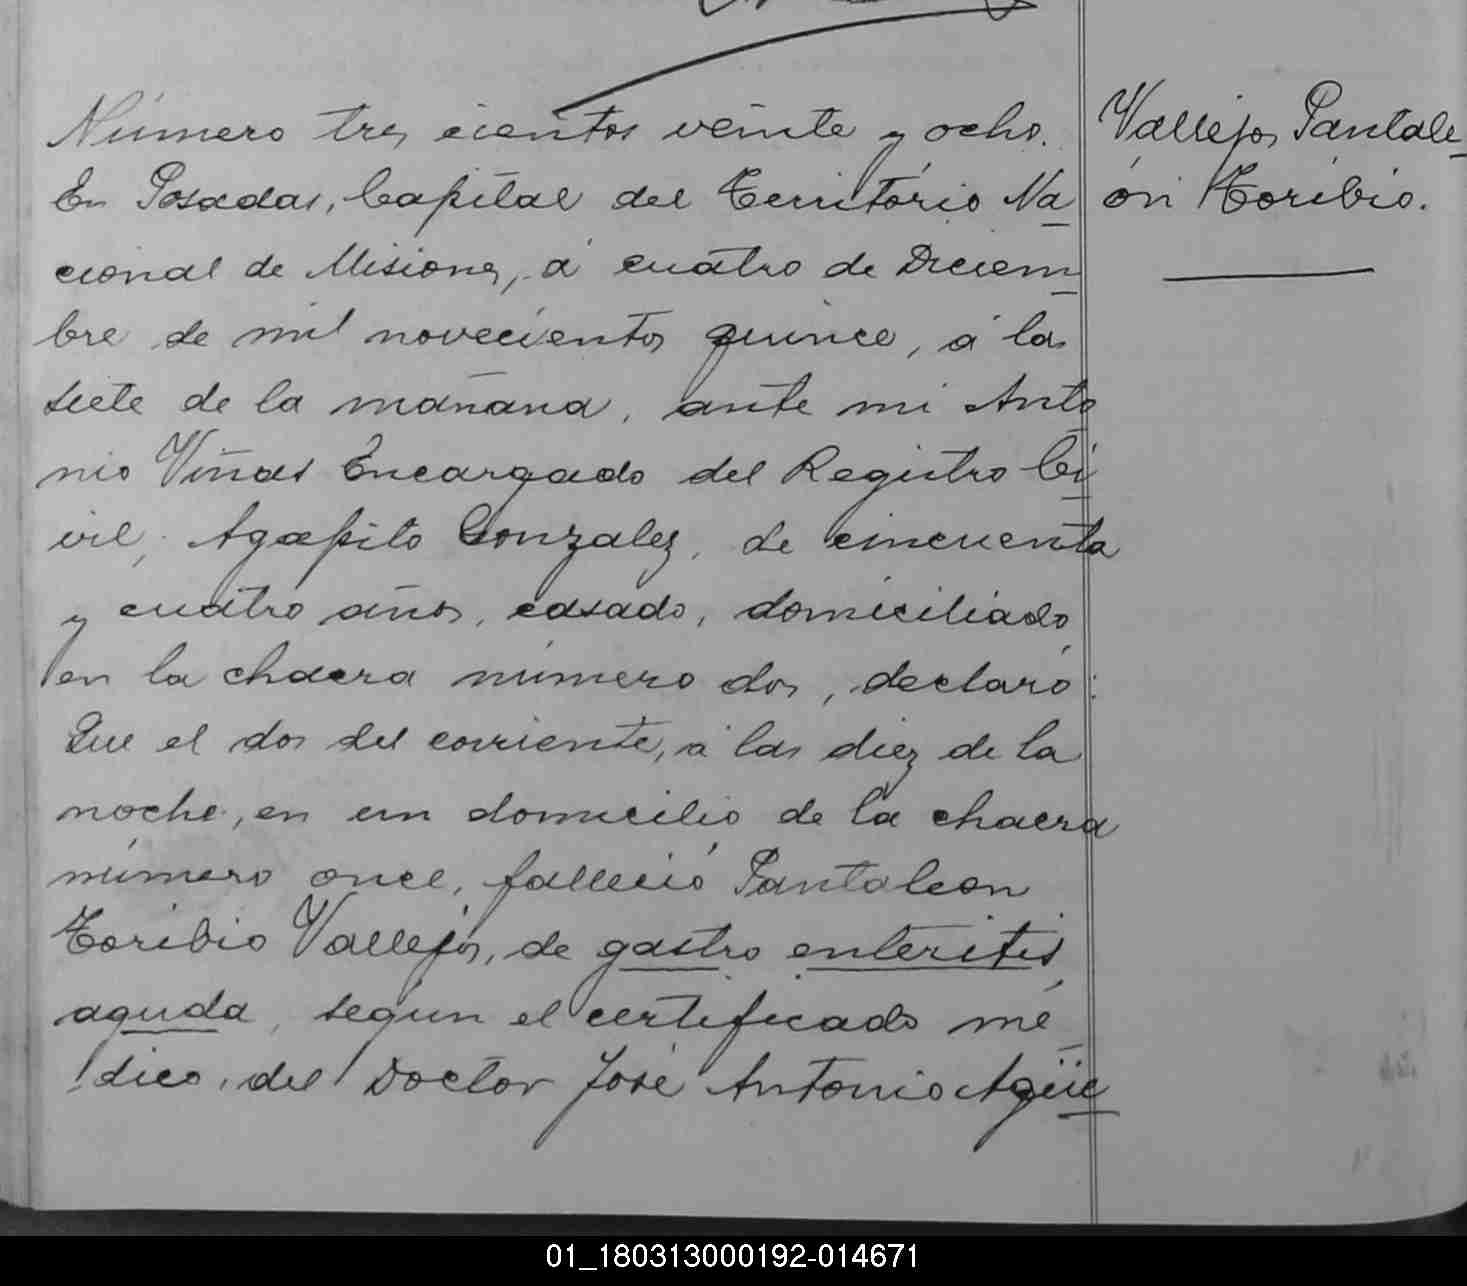 Número tres cientos veinte y ocho.
En Posadas, Capital del Território Na
cional de Misiones, á cuatro de Diciem
bre de mil novecientos quince, á las
siete de la mañana, ante mi Anto
nio Viñas Encargado del Registro Ci
vil, Agapito Gonzalez, de cincuenta
y cuatro años, casado, domiciliado
en la chacra número dos, declaró:
Que el dos del corriente, á las diez de la
noche, en un domicilio de la chacra
número once, falleció Pantaleon
Toribio Vallejos, de gastro enteritis
aguda, según el certificado mé
dico, del Doctor José Antonio Agüe
Vallejos Pantale
ón Toribio.
01_180313000192-014671